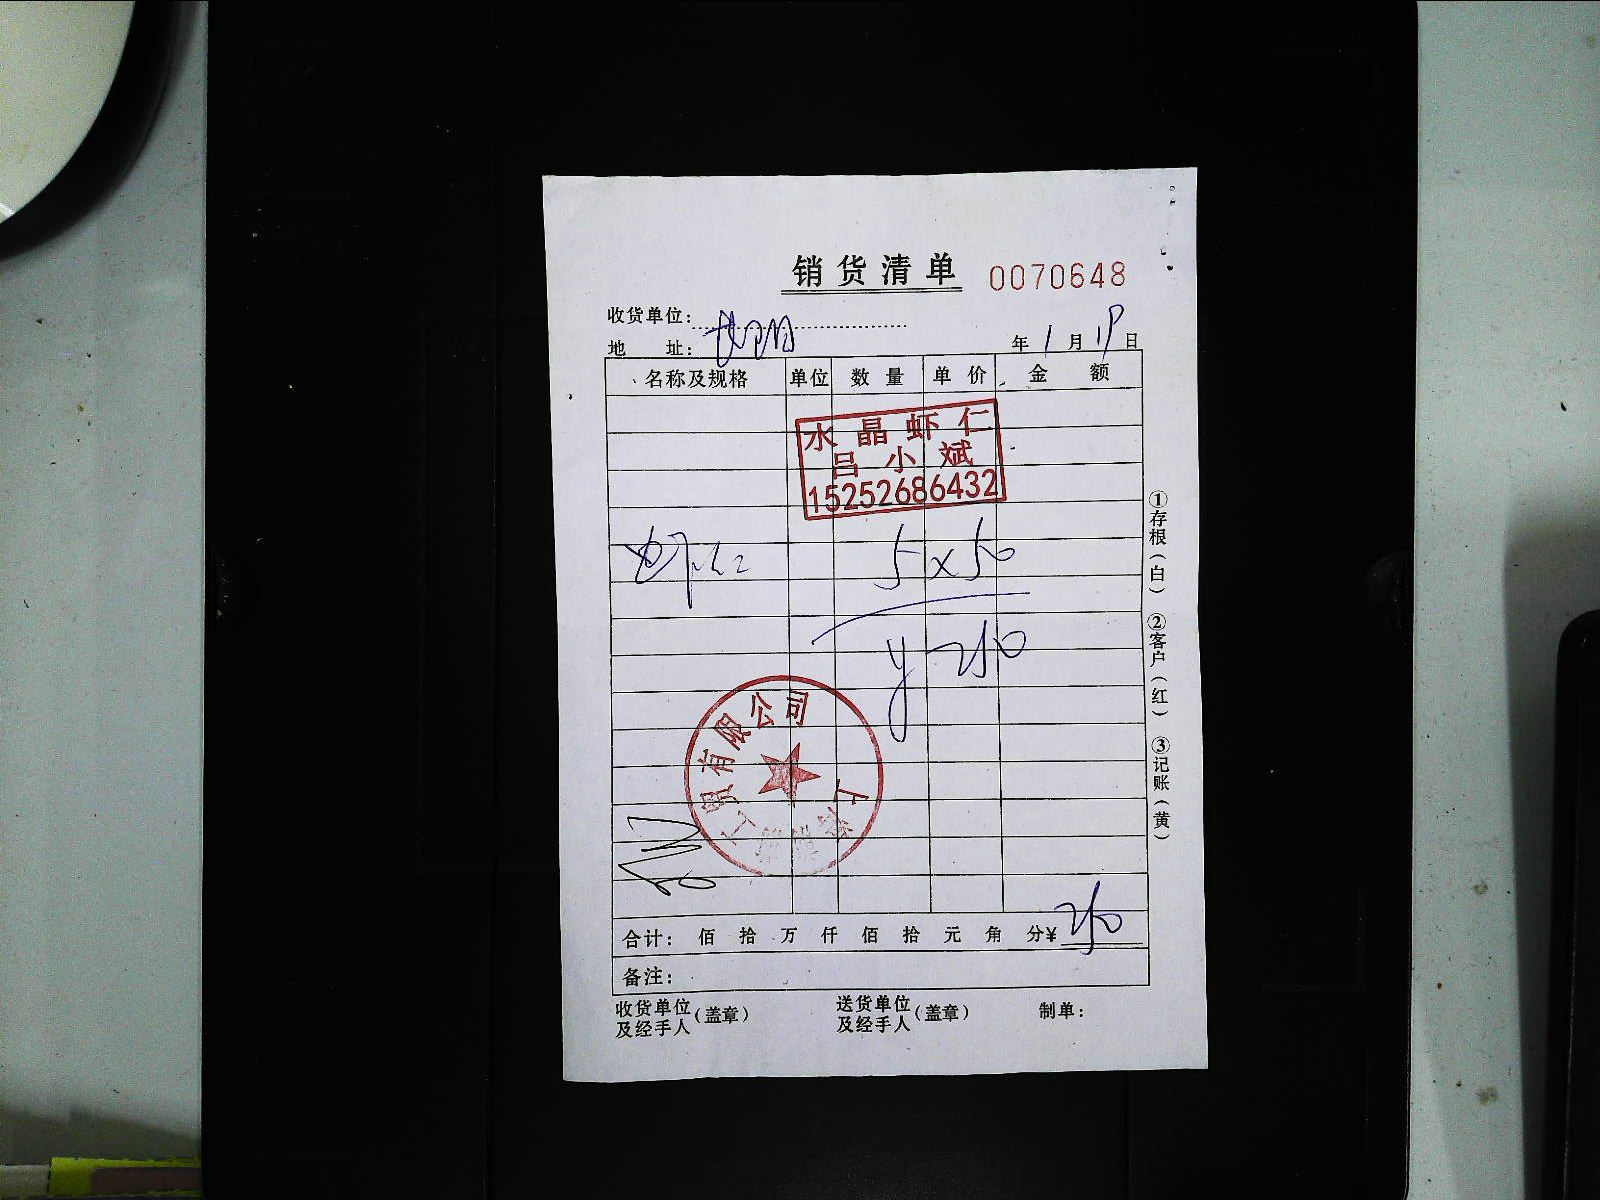 销货清单 0070648
收货单位:
地 址:
年 1 月 19 日
名称及规格 单位 数量 单价 金额
水晶虾仁
吕小斌
15252686432
虾仁 5 x 50
¥ 250
有限公司
合计: 佰 拾 万 仟 佰 拾 元 角 分¥ 250
备注:
收货单位及经手人(盖章) 送货单位及经手人(盖章) 制单:
①存根(白) ②客户(红) ③记账(黄)